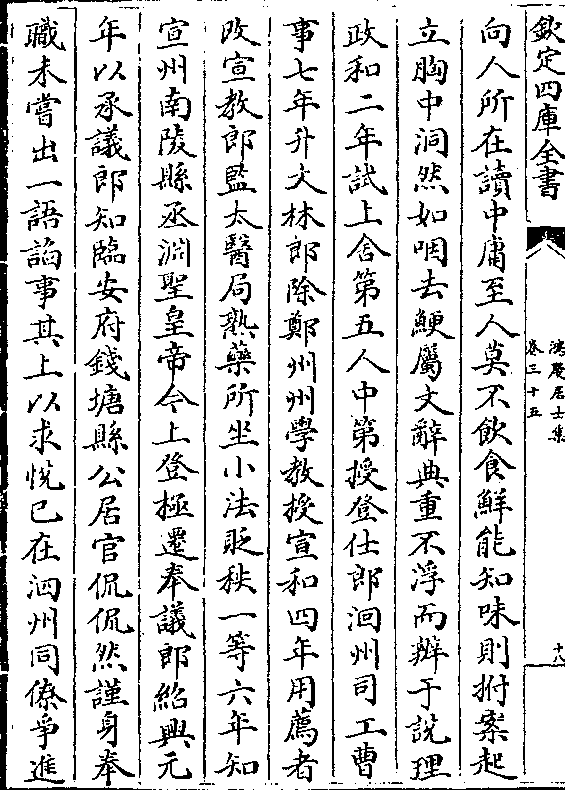 欽定四庫全書
鴻慶居士集
卷三十五
十八
向人所在讀中庸至人莫不飲食鮮能知味則拊案起
立胸中洞然如咽去鯁屬文辭典重不浮而辨于說理
政和二年試上舍第五人中第授登仕郎洄州司工曹
事七年升文林郎除鄭州州學教授宣和四年用薦者
改宣教郎監太醫局熟藥所坐小法貶秩一等六年知
宣州南陵縣丞淵聖皇帝今上登極遷奉議郎紹興元
年以承議郎知臨安府錢塘縣公居官侃侃然謹身奉
職未嘗出一語諂事其上以求悅已在泗州同僚爭進